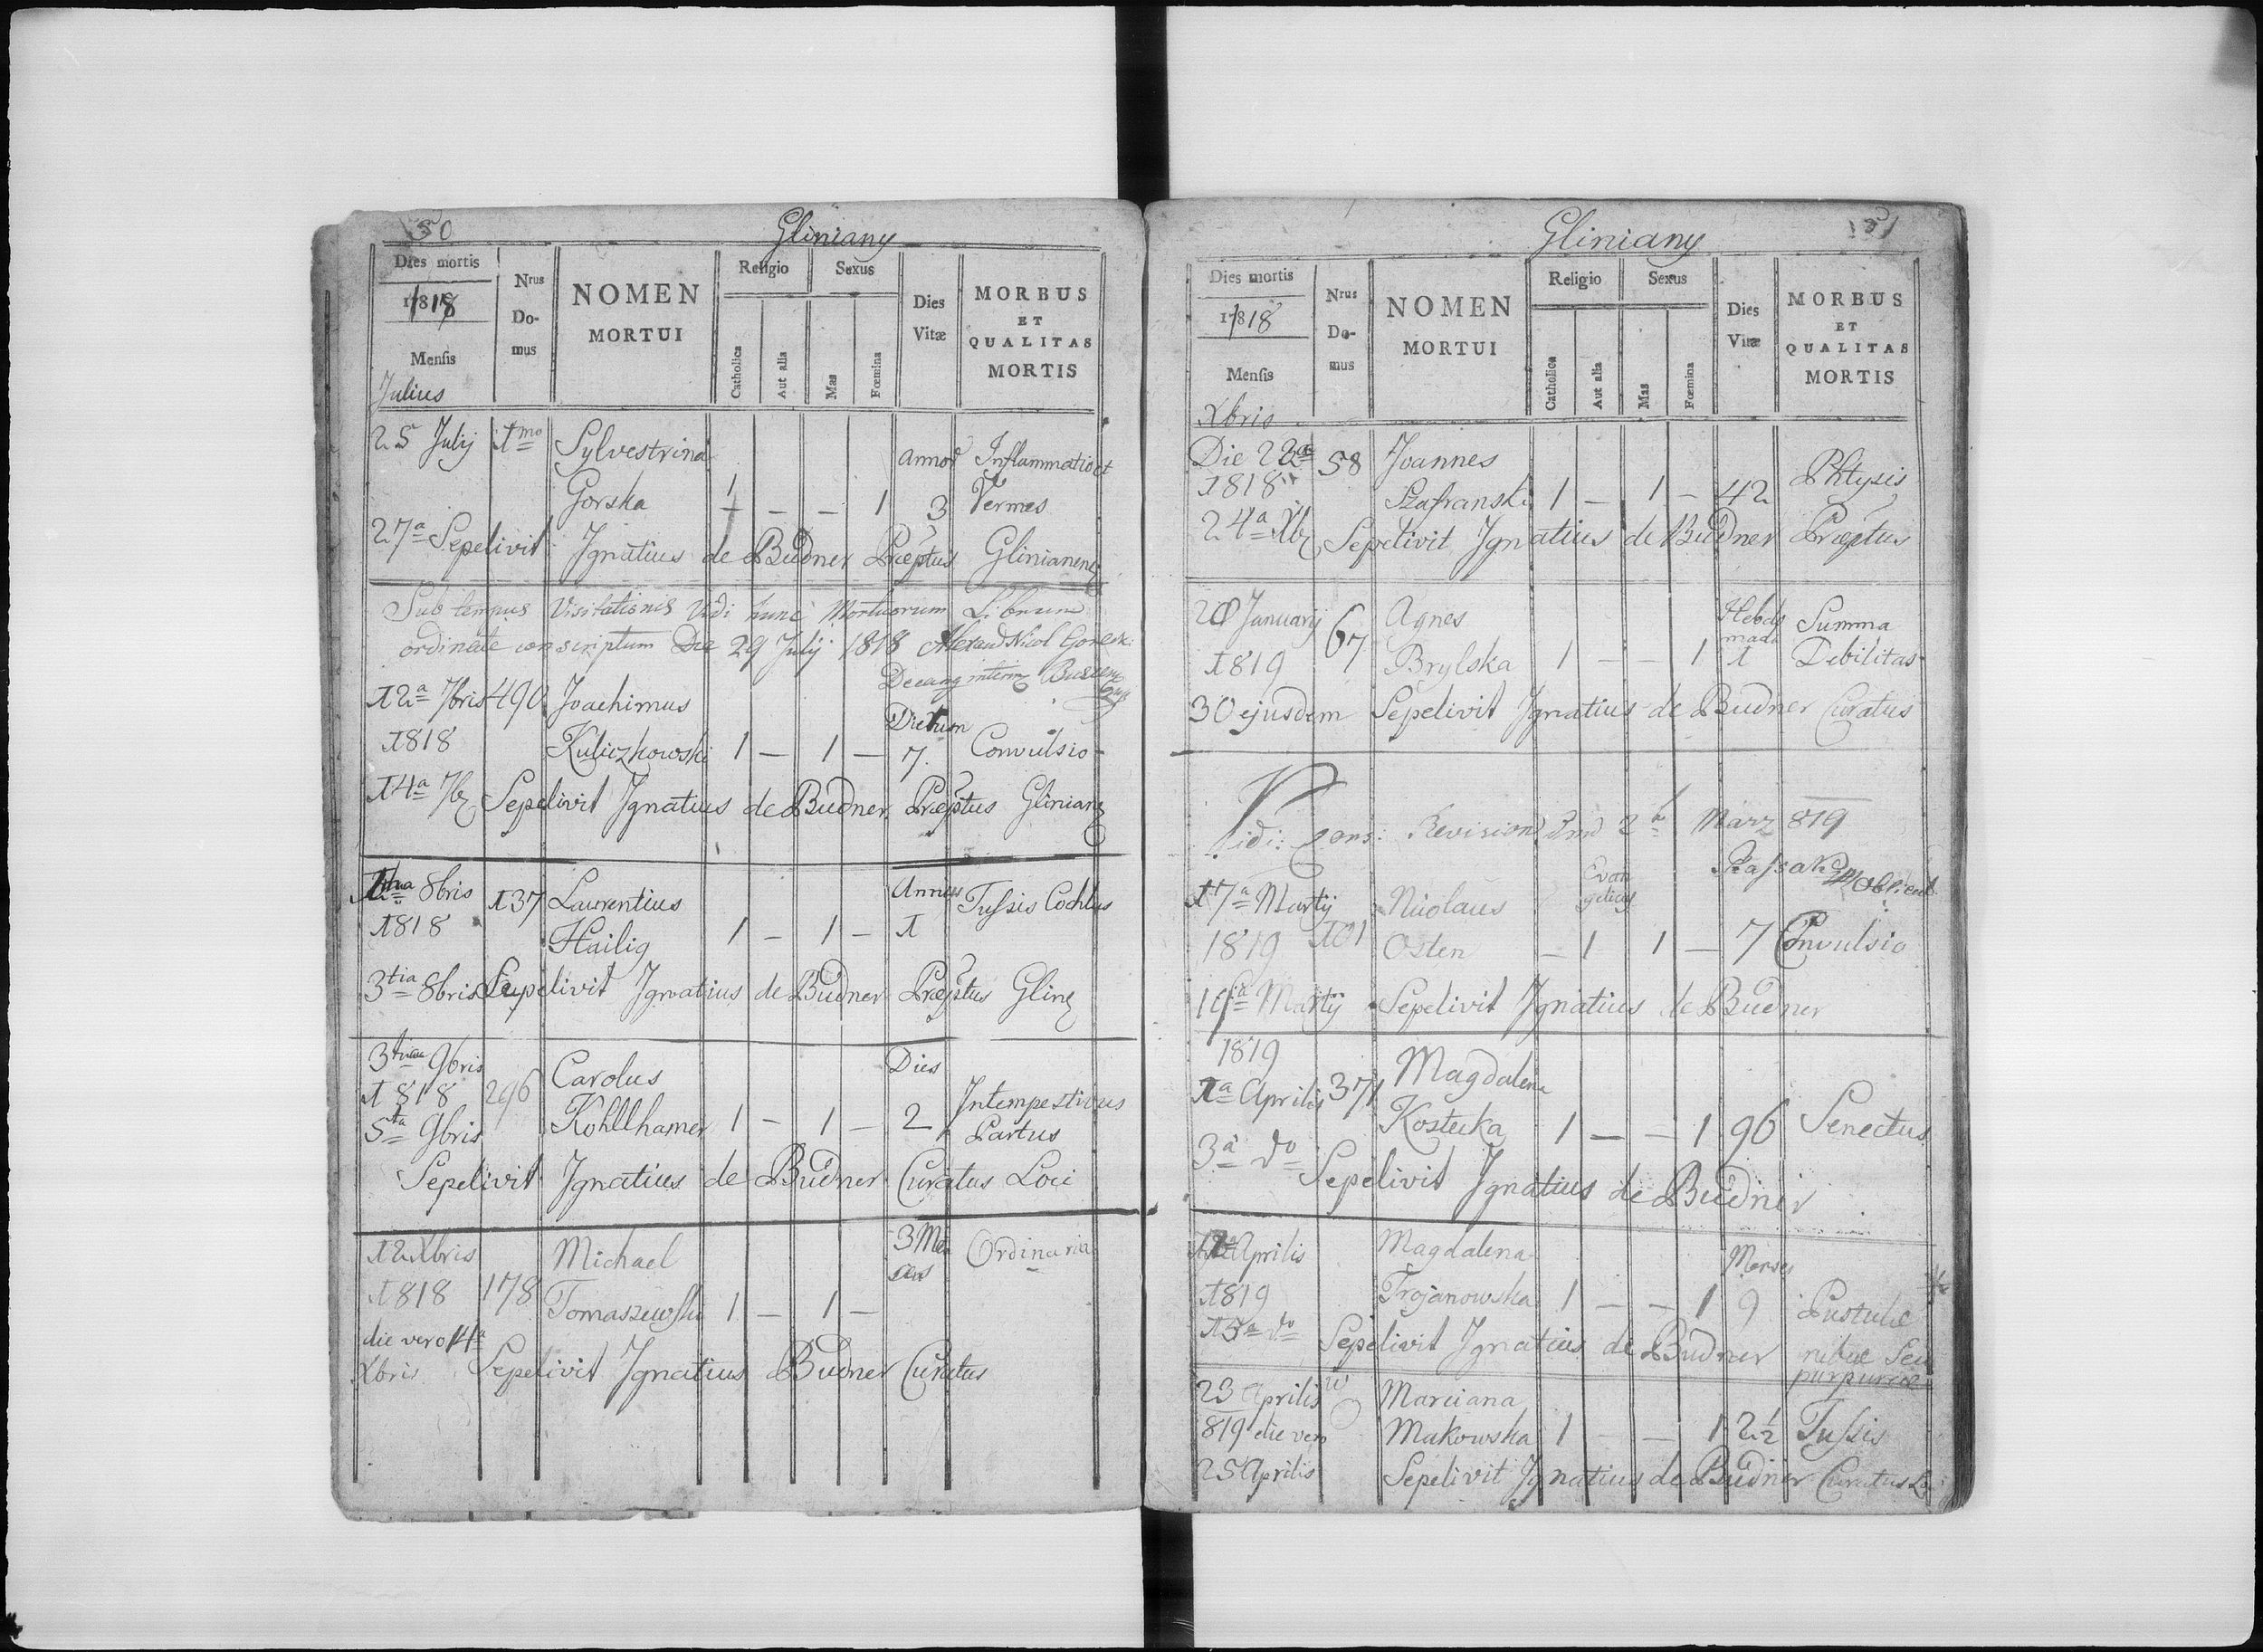 50
Gliniany
Dies mortis
1818
Mensis
Julius
Nrus Do-mus
NOMEN MORTUI
Religio
Catholica
Aut alia
Sexus
Mas
Fœmina
Dies Vitæ
MORBUS ET QUALITAS MORTIS
25 Julij 1mo Sylvestrina annor Inflammatio et
Gorska 1 — — 1 3 Vermes
27a Sepelivit Ignatius de Budner Præptus Glinianen
Sub tempus Visitationis Vidi hunc Mortuorum Librum
ordinate conscriptum Die 29 Julij 1818 Alexand Nicol
12a 7bris 490 Joachimus Dierum
1818 Kuliczkowski 1 — 1 — 7. Convulsio
14a 7b Sepelivit Ignatius de Budner Præptus Glinian
8bris 137 Laurentius Annus Tussis
1818 Hailig 1 — 1 — 1
3tia 8bris Sepelivit Ignatius de Budner Præptus Glin
3tia 9bris Carolus Dies
1818 296 Kohllhamer 1 — 1 — 2 Intempestivus
5ta 9bris Partus
Sepelivit Ignatius de Budner Curatus Loci
12 Xbris Michael 3 Men Ordinaria
1818 178 Tomaszewski 1 — 1 — ses
die vero 14a
Xbris Sepelivit Ignatius Budner Curatus
51
Gliniany
Dies mortis
1818
Mensis
Xbris
Nrus Do-mus
NOMEN MORTUI
Religio
Catholica
Aut alia
Sexus
Mas
Fœmina
Dies Vitæ
MORBUS ET QUALITAS MORTIS
Die 22a 58 Joannes Phtysis
1818 Szafranski 1 — 1 — 42
24a Xb Sepelivit Ignatius de Budner Præptus
Januarij 67 Agnes Hebdo Summa
1819 Brylska 1 — — 1 mada 1 Debilitas
30 ejusdem Sepelivit Ignatius de Budner Curatus
Vidi: Revision 2 März 819
17a Martij Nicolaus Evangelicus
1819 101 Osten — 1 1 — 7 Convulsio
19a Martij Sepelivit Ignatius de Budner
1819
1a Aprilis 371 Magdalena
Kostecka 1 — — 1 96 Senectus
3a do Sepelivit Ignatius de Budner
Aprilis Magdalena Menses
1819 Trojanowska 1 — — 1 9 Pustulæ
do Sepelivit Ignatius de Budner rubræ seu
purpureæ
23 Aprilis Marciana
819 die vero Makowska 1 — — 1 2 1/2 Tussis
25 Aprilis Sepelivit Ignatius de Budner Curatus